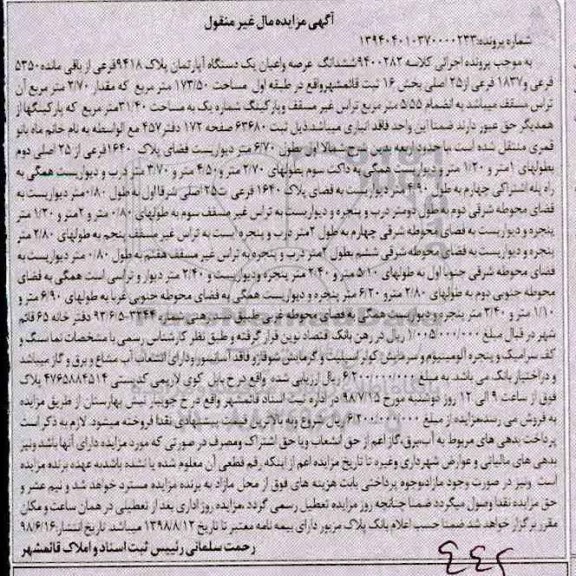 آگهی مزایده مال غیر منقول
شماره پرونده: ۱۳۹۴۰۴۰۱۰۳۷۰۰۰۰۲۳۳
به موجب پرونده اجرائی کلاسه ۹۴۰۰۲۸۲ ششدانگ عرصه واعیان یک دستگاه آپارتمان پلاک ۹۴۱۸ فرعی از باقی مانده ۵۳۵۰
فرعی و ۱۸۳۷ فرعی از ۲۵ اصلی بخش ۱۶ ثبت قائمشهر واقع در طبقه اول مساحت ۱۷۳/۵۰ متر مربع که مقدار ۲/۷۰ متر مربع آن
تراس مسقف میباشد به انضمام ۵/۵۵ متر مربع تراس غیر مسقف وپارکینگ شماره یک به مساحت ۳۱/۴۰ متر مربع که پارکینگها از
همدیگر حق عبور دارند ضمنا این واحد فاقد انباری میباشد ذیل ثبت ۶۳۶۸۰ صفحه ۱۷۲ دفتر ۴۵۷ مع الواسطه به نام خانم ماه بانو
قمری منتقل شده است با حدود اربعه بدین شرح شمالا اول بطول ۶/۷۰ متر دیواریست فضای پلاک ۱۶۴۰ فرعی از ۲۵ اصلی دوم
بطولهای ۱ متر و ۱/۲۰ متر و دیواریست همگی به داکت سوم بطولهای ۲/۷۰ متر و ۴/۵۰ متر و ۳/۷۰ متر درب و دیواریست همگی به
راه پله اشتراکی چهارم به طول ۴/۹۰ متر دیواریست به فضای پلاک ۱۶۴۰ فرعی ت ۲۵ اصلی شرقا اول به طول ۰/۸۰ متر دیواریست به
فضای محوطه شرقی دوم به طول دو متر درب و پنجره و دیواریست به تراس غیر مسقف سوم به طولهای ۰/۸۰ متر و ۲ متر و ۱/۲۰ متر
پنجره و دیواریست به فضای محوطه شرقی چهارم به طول ۲ متر درب و پنجره است به تراس غیر مسقف پنجم به طولهای ۲/۸۰ متر
پنجره و دیواریست به فضای محوطه شرقی ششم بطول ۲ متر درب و پنجره به تراس غیر مسقف هفتم به طول ۰/۸۰ متر دیواریست به
فضای محوطه شرقی جنوبا اول به طولهای ۵/۱۰ متر و ۲/۴۰ متر پنجره ودیواریست و ۲/۴۰ متر دیوار و تراسی است همگی به فضای
محوطه جنوبی دوم به طولهای ۲/۸۰ مترو ۶/۲۰ متر پنجره و دیواریست همگی به فضای محوطه جنوبی غربا به طولهای ۶/۹۰ متر و
۱/۱۰ متر و ۲/۴۰ متر پنجره و دیواریست همگی به فضای محوطه غربی طبق سند رهنی شماره ۳۲۴۴-۹۳/۶/۵ دفتر خانه ۶۵ قائم
شهر در قبال مبلغ ۱/۰۰۵/۰۰۰/۰۰۰ ریال در رهن بانک اقتصاد نوین قرار گرفته و طبق نظر کارشناس رسمی با مشخصات نما سنگ و
کف سرامیک و پنجره آلومینیوم و سرمایش کولر اسپیلت و گرمایش شوفاژ و فاقد آسانسور ودارای انشعاب آب مشاع و برق و گاز میباشد
و دراختیار بانک می باشد. به مبلغ ۶/۲۰۰/۰۰۰/۰۰۰ ریال ارزیابی شده. واقع درج بابل کوی لازیمی کدپستی ۴۷۶۵۸۸۴۵۱۴ پلاک
فوق از ساعت ۹ الی ۱۲ روز دوشنبه مورخ ۹۸/۷/۱۵ در اداره ثبت اسناد قائمشهر واقع در خ جویبار نبش بهارستان از طریق مزایده
به فروش می رسد مزایده از مبلغ ۶/۲۰۰/۰۰۰/۰۰۰ ریال شروع وبه بالاترین قیمت پیشنهادی نقدا فروخته میشود. لازم به ذکر است
پرداخت بدهی های مربوط به آب،برق،گاز اعم از حق انشعاب ویا حق اشتراک ومصرف در صورتی که مورد مزایده دارای آنها باشد ونیز
بدهی های مالیاتی و عوارض شهرداری وغیره تا تاریخ مزایده اعم از اینکه رقم قطعی آن معلوم شده یا نشده باشد به عهده برنده مزایده
است ونیز در صورت وجود مازاد،وجوه پرداختی بابت هزینه های فوق از محل مازاد به برنده مزایده مسترد خواهد شد و نیم عشر و
حق مزایده نقدا وصول میگردد ضمنا چنانچه روز مزایده تعطیل رسمی گردد مزایده روز اداری بعد از تعطیلی در همان ساعت و مکان
مقرر برگزار خواهد شد ضمنا حسب اعلام بانک پلاک مزبور دارای بیمه نامه معتبر تا تاریخ ۱۳۹۸/۸/۱۲ میباشد. تاریخ انتشار: ۹۸/۶/۱۶
رحمت سلمانی رییس ثبت اسناد و املاک قائمشهر